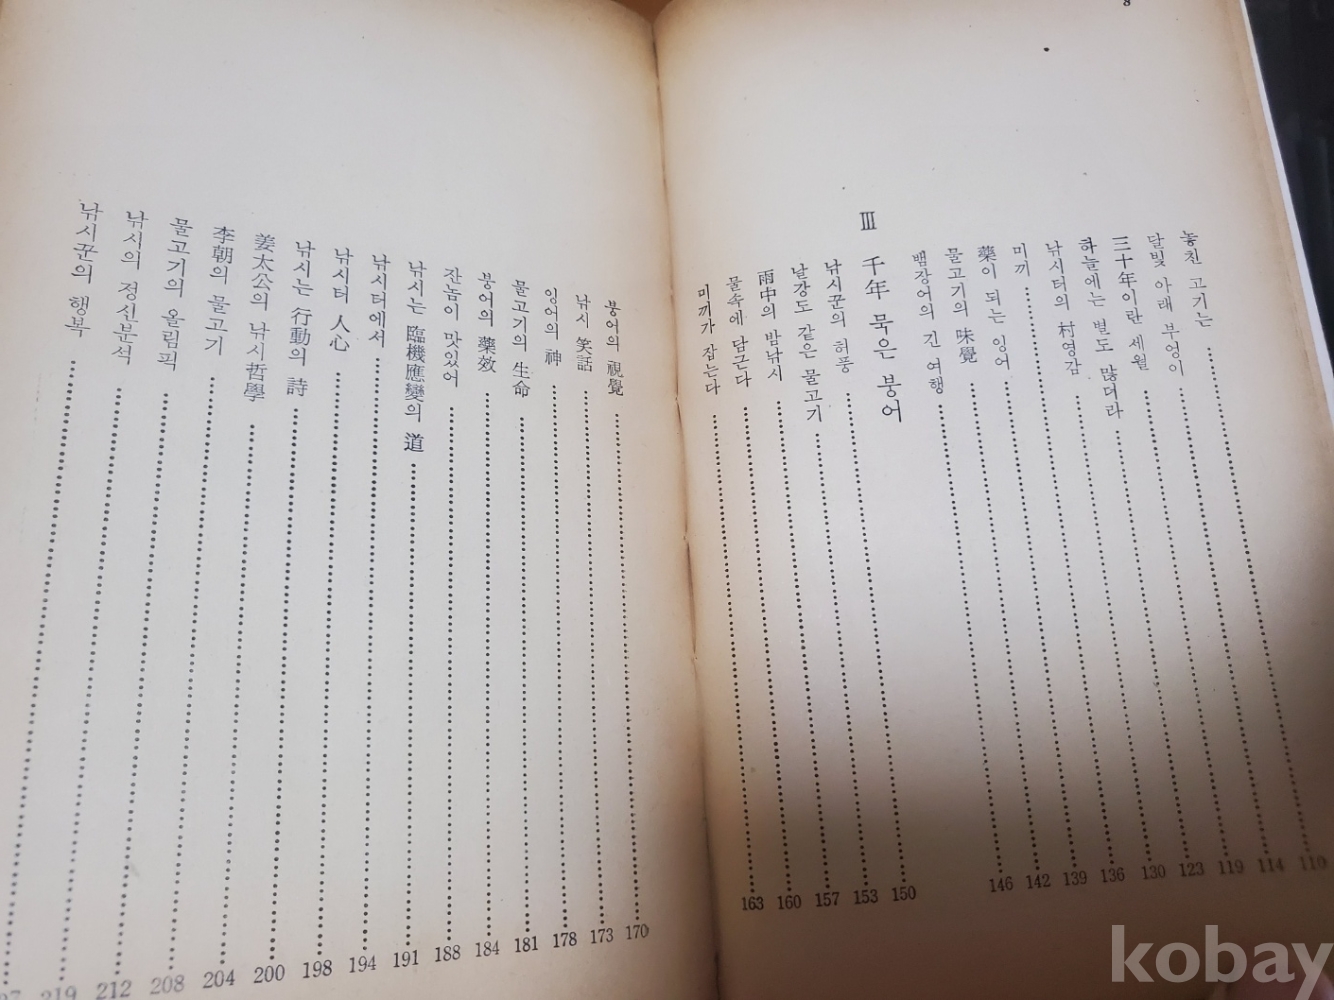 8
놓친 고기는 110
달빛 아래 부엉이 114
三十年이란 세월 119
하늘에는 별도 많더라 123
낚시터의 村영감 130
미끼 136
藥이 되는 잉어 139
물고기의 味覺 142
뱀장어의 긴 여행 146
Ⅲ 千年 묵은 붕어
낚시꾼의 허풍 150
날강도 같은 물고기 153
雨中의 밤낚시 157
물속에 담근다 160
미끼가 잡는다 163
붕어의 視覺 170
낚시 笑話 173
잉어의 神 178
물고기의 生命 181
붕어의 藥效 184
잔놈이 맛있어 188
낚시는 臨機應變의 道 191
낚시터에서 194
낚시터 人心 198
낚시는 行動의 詩 200
姜太公의 낚시哲學 204
李朝의 물고기 208
물고기의 올림픽 212
낚시의 정신분석 219
낚시꾼의 행복
kobay